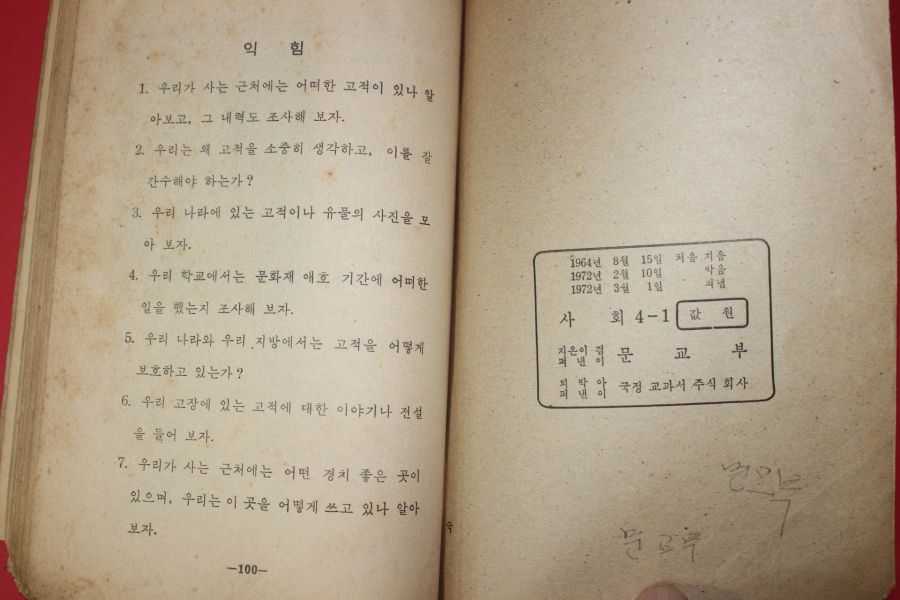 익 힘
1. 우리가 사는 근처에는 어떠한 고적이 있나 알
아보고, 그 내력도 조사해 보자.
2. 우리는 왜 고적을 소중히 생각하고, 이를 잘
간수해야 하는가?
3. 우리 나라에 있는 고적이나 유물의 사진을 모
아 보자.
4. 우리 학교에서는 문화재 애호 기간에 어떠한
일을 했는지 조사해 보자.
5. 우리 나라와 우리 지방에서는 고적을 어떻게
보호하고 있는가?
6. 우리 고장에 있는 고적에 대한 이야기나 전설
을 들어 보자.
7. 우리가 사는 근처에는 어떤 경치 좋은 곳이
있으며, 우리는 이 곳을 어떻게 쓰고 있나 알아
보자.
—100—
1964년 8월 15일 처음 지음
1972년 2월 10일 박음
1972년 3월 1일 펴냄
사 회 4-1 값 원
지은이 겸
펴 낸 이 문 교 부
되 박 아
펴 낸 이 국정 교과서 주식 회사
문교부